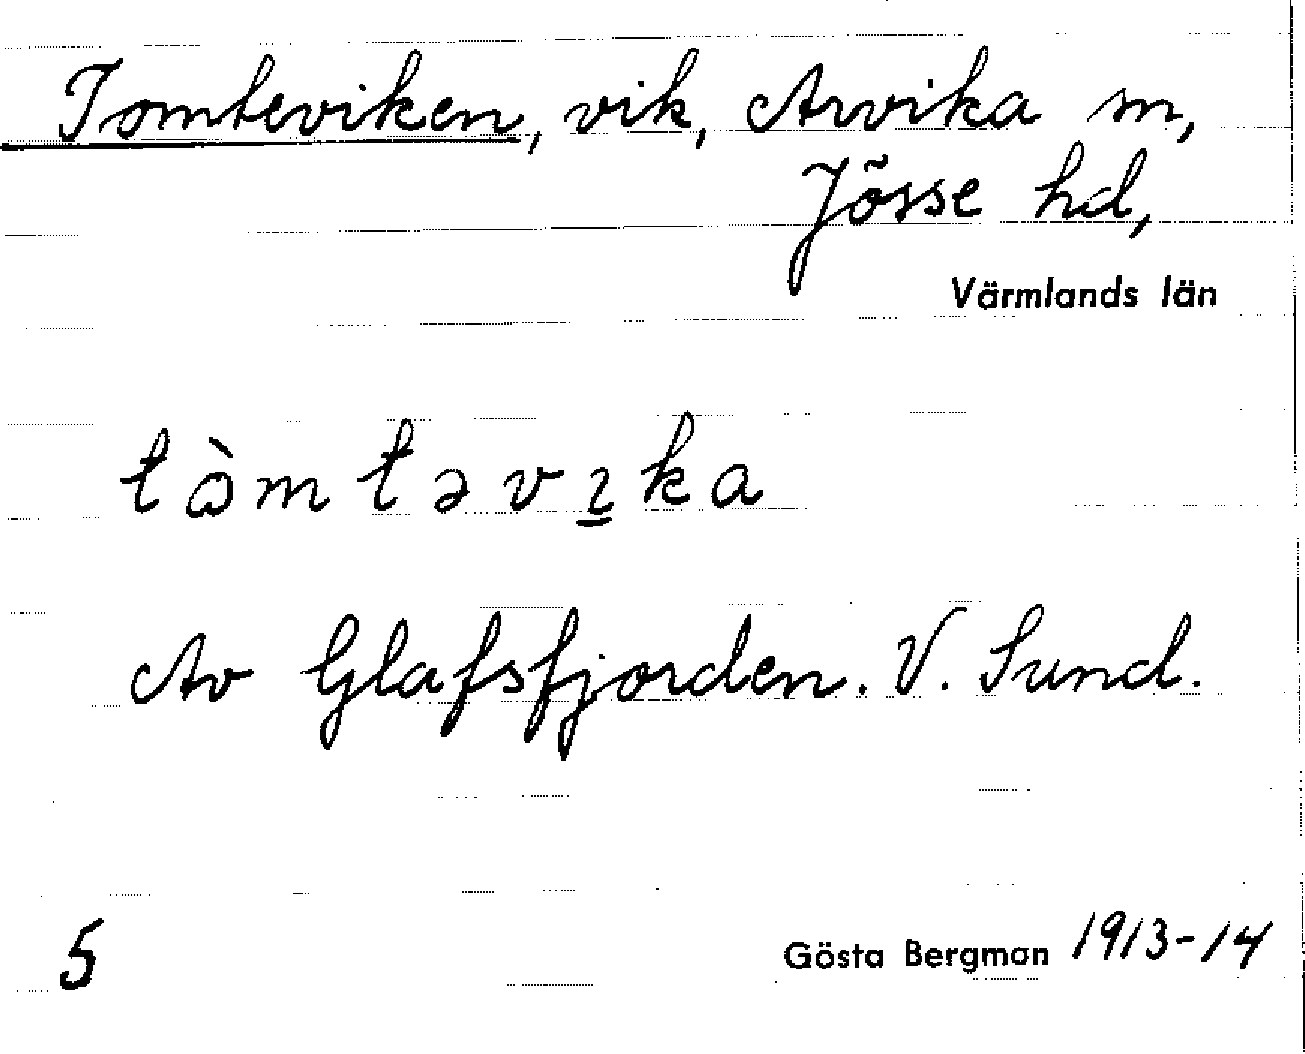 Tomteviken, vik, Arvika sn,
Jösse hd,
Värmlands län
tòmtəvı̱ka
Av Glafsfjorden. V. Sund.
5 Gösta Bergman 1913-14